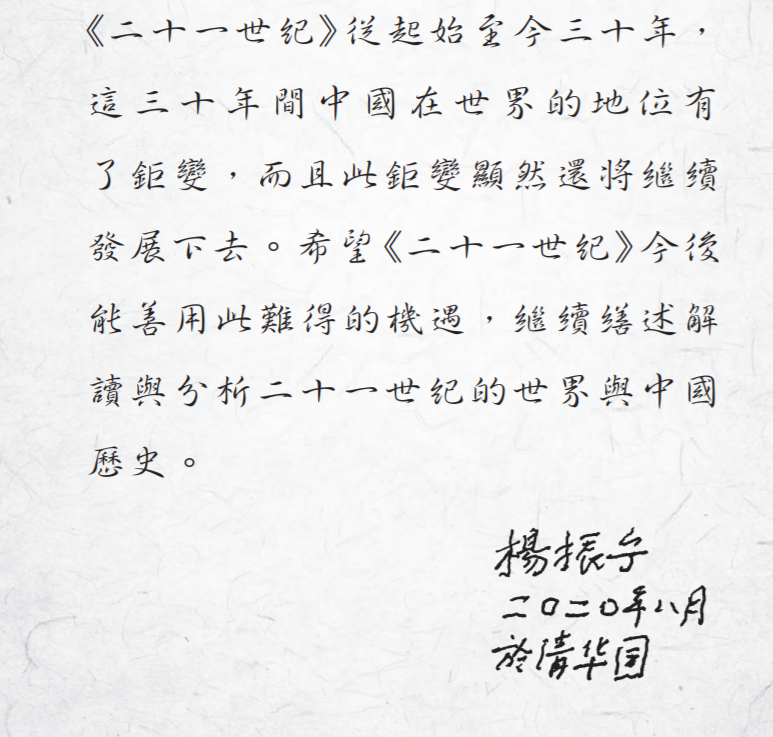 《二十一世紀》從起始至今三十年，
這三十年間中國在世界的地位有
了鉅變，而且此鉅變顯然還將繼續
發展下去。希望《二十一世紀》今後
能善用此難得的機遇，繼續繕述解
讀與分析二十一世紀的世界與中國
歷史。
楊振宁
二〇二〇年八月
於清华园